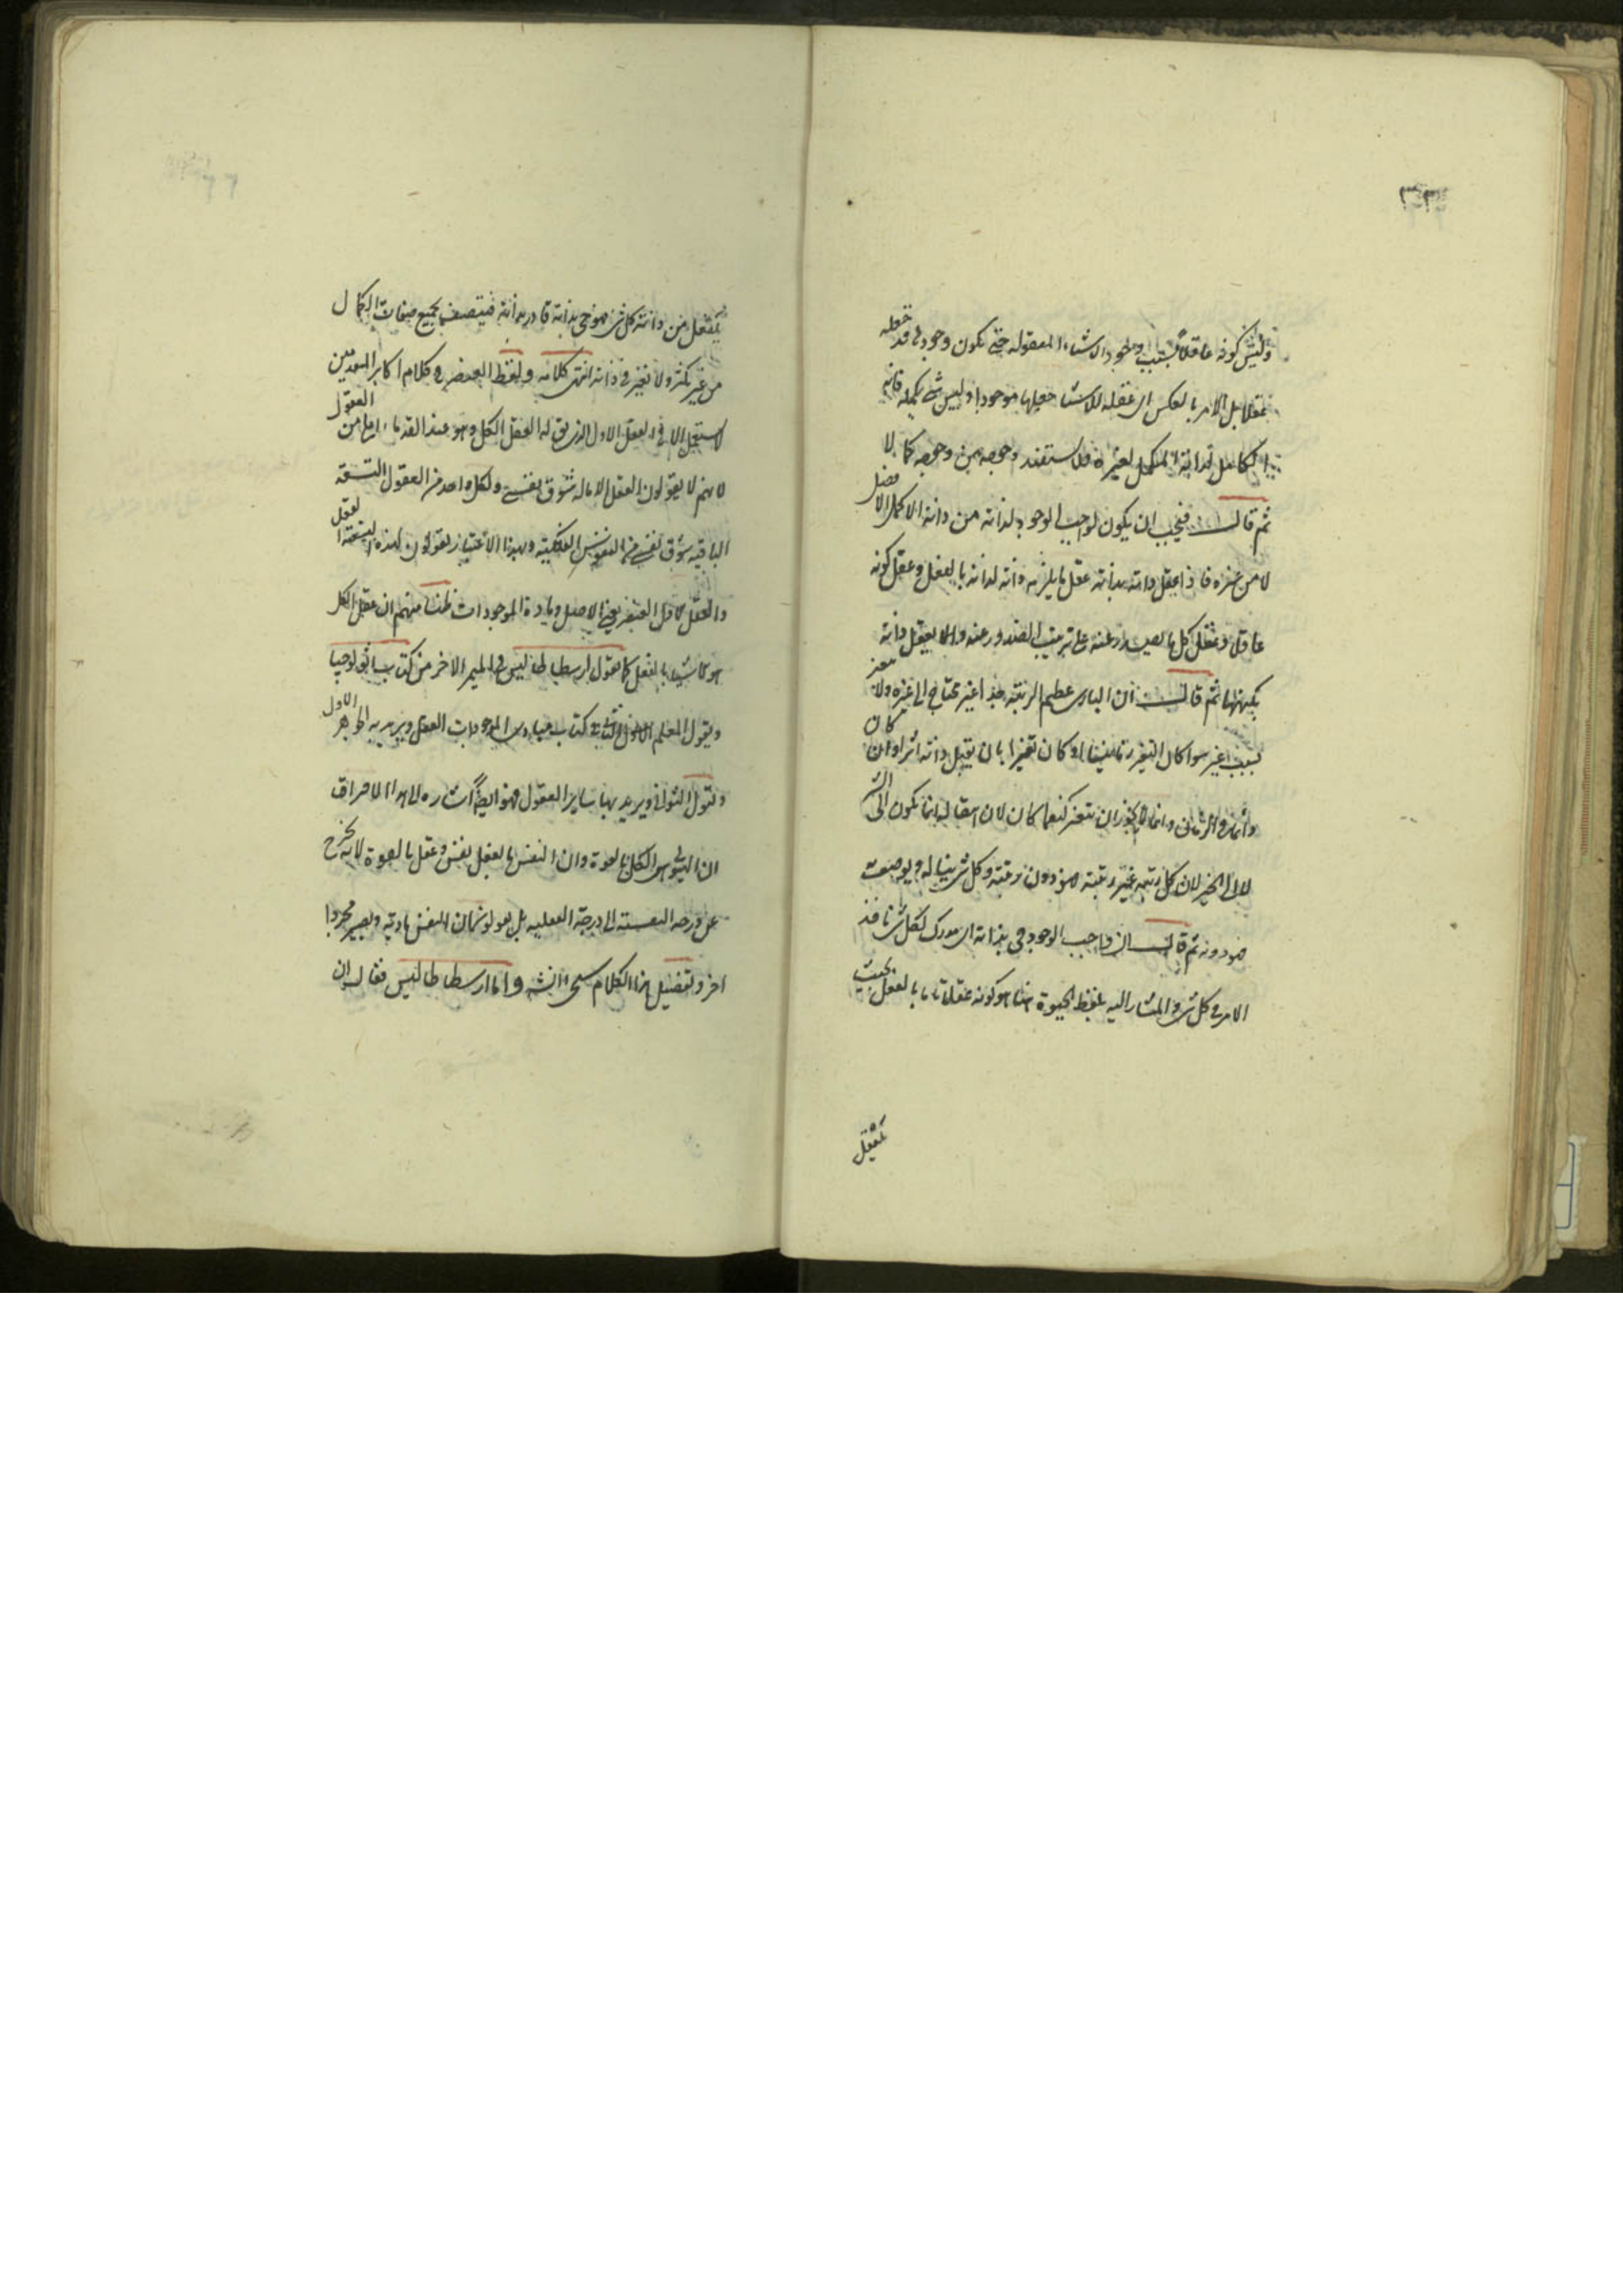 وليس كونه عاقلا بسبب وجود الاشياء المعقوله حتى يكون وجودها قد جعله
عقلا بل الامر بالعكس اى عقله للاشيا جعلها موجودا وليس شى يكمله فانه
الكامل لذاته المكمل لغيره فلا يستفيد وجوده من وجوده كمالا
ثم قال فيجب ان يكون لواجب الوجود لذاته من ذاته الاكمل الافضل
لا من غيره فاذا يعقل ذاته بذاته عقل ما يلزمه ذاته لذاته بالفعل وعقل كونه
عاقلا وعقل كل ما يصدر عنه على ترتيب الصدور عنه والا لا يعقل ذاته
بكنهها ثم قال ان البارى عظيم الرتبه جدا غير محتاج الى غيره ولا متغير
بسبب غير سوا كان التغير زمانيا او كان تغيرا بان يقبل ذاته اثرا وان كان
دائما فى الزمان وانما لا يجوز ان يتغير كيفما كان لان انتقاله انما يكون الى الشر
لا الى الخير لان كل رتبه غير رتبته فهو دون رتبته وكل شى يناله ويوصف به
فهو دونه ثم قال ان واجب الوجود حى بذاته اى مدرك لكل شى نافذ
الامر فى كل شى والمشار اليه بلفظ الحيوة هنا هو كونه عقلا بالفعل بحيث
يعقل
يعقل من ذاته كل شى فهو حى بذاته قادر بذاته فيتصف بجميع صفات الكمال
من غير تكثر ولا تغير فى ذاته انتهى كلامه ولفظ العنصر فى كلام اكابر المتقدمين
لا يستعمل الا فى العقل الاول الذى يق له العقل الكل وهو عند القدماء امام من العقول
لانهم لا يقولون العقل الا ما له شوق نفسى ولكل واحد من العقول التسعه
الباقيه شوق نفسى من النفوس الفلكيه وبهذا الاعتبار يقولون لهذه التسعه العقل
والعقل الاول العنصر يعنى الاصل وماده الموجودات ظنا منهم ان عقل الكل
هو الاشياء بالفعل كما يقول ارسطاطاليس فى الميمر الاخر من كتاب اثولوجيا
ويقول المعلم الثانى فى كتاب مبادى الموجودات العقل ويريد به الجوهر الاول
ويقول الثوانى ويريد بها ساير العقول فهو ايضا اشاره الى هذا الاعراق
ان الهيولى هى الكل بالقوة وان النفس بالفعل نفس وعقل بالقوة لا يخرج
عن درجه النفسيه الى درجة العقليه بل يعولون ان النفس ماديه ويصير مجردا
اخر وتفصيل هذا الكلام سيجى ان شه واما ارسطاطاليس فقال ان